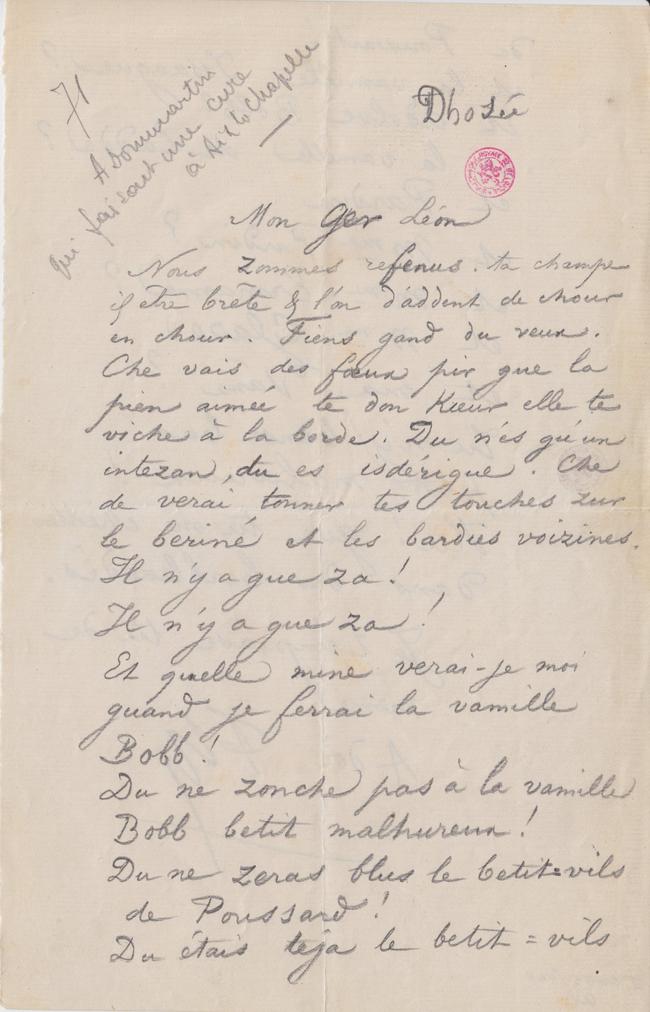 71
A Dommartin
qui faisait une cure
à Aix la Chapelle
Dhozée
Mon Ger Léon
Nous zommes refenus. ta champe
il etre brête & l'on d'addent de chour
en chour. Fiens gand du veux.
Che vais des fœux pir gue la
pien aimée te don Kœur elle te
viche à la borde. Du n'es gu'un
intezan, du es isdérigue. Che
de verai tonner tes touches zur
le beriné et les bardies voizines.
Il n'y a gue za !
Il n'y a gue za !
Et quelle mine verai-je moi
quand je ferrai la vamille
Bobb !
Du ne zonche pas à la vamille
Bobb betit malhureux !
Du ne zeras blus le betit=vils
de Poussard !
Du étais teja le betit=vils